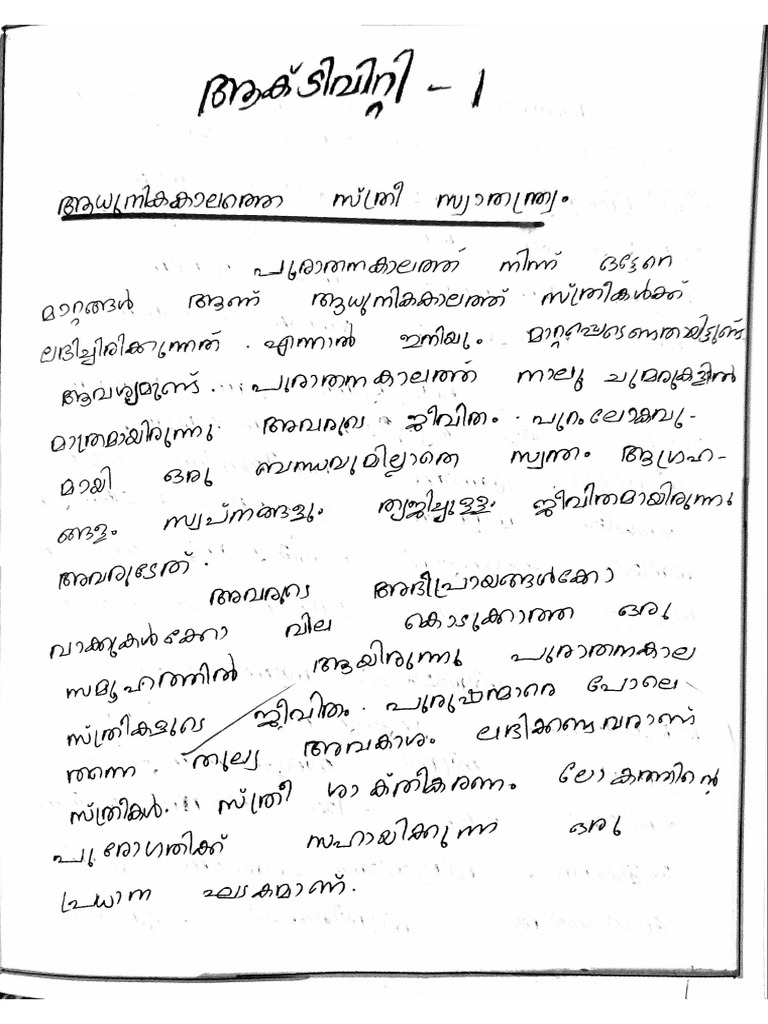 ആക്ടിവിറ്റി - 1
ആധുനികകാലത്തെ സ്ത്രീ സ്വാതന്ത്ര്യം.
പുരാതനകാലത്ത് നിന്ന് ഒട്ടേനെ
മാറ്റങ്ങൾ ആണ് ആധുനികകാലത്ത് സ്ത്രികൾക്ക്
ലഭിച്ചിരിക്കുന്നത്. എന്നാൽ ഇനിയും മാറ്റപ്പെടേണതായിട്ടുണ്ട്
ആവശ്യമുണ്ട്. പുരാതനകാലത്ത് നാലു ചുമരുകളിൽ
മാത്രമായിരുന്നു അവരുടെ ജീവിതം. പുറംലോകവു-
മായി ഒരു ബന്ധവുമില്ലാതെ സ്വന്തം ആഗ്രഹ-
ങ്ങളും സ്വപ്നങ്ങളും ത്യജിച്ചുള്ള ജീവിതമായിരുന്നു
അവരുടേത്.
അവരുടെ അഭിപ്രായങ്ങൾക്കോ
വാക്കുകൾക്കോ വില കൊടുക്കാത്ത ഒരു
സമൂഹത്തിൽ ആയിരുന്നു പുരാതനകാല
സ്ത്രികളുടെ ജീവിതം. പുരുഷന്മാരെ പോലെ
തന്നെ തുല്യ അവകാശം ലഭിക്കണ്ടവരാണ്
സ്ത്രികൾ. സ്ത്രീ ശാക്തികരണം ലോകത്തിന്റെ
പുരോഗതിക്ക് സഹായിക്കുന്ന ഒരു
പ്രധാന ഘടകമാണ്.